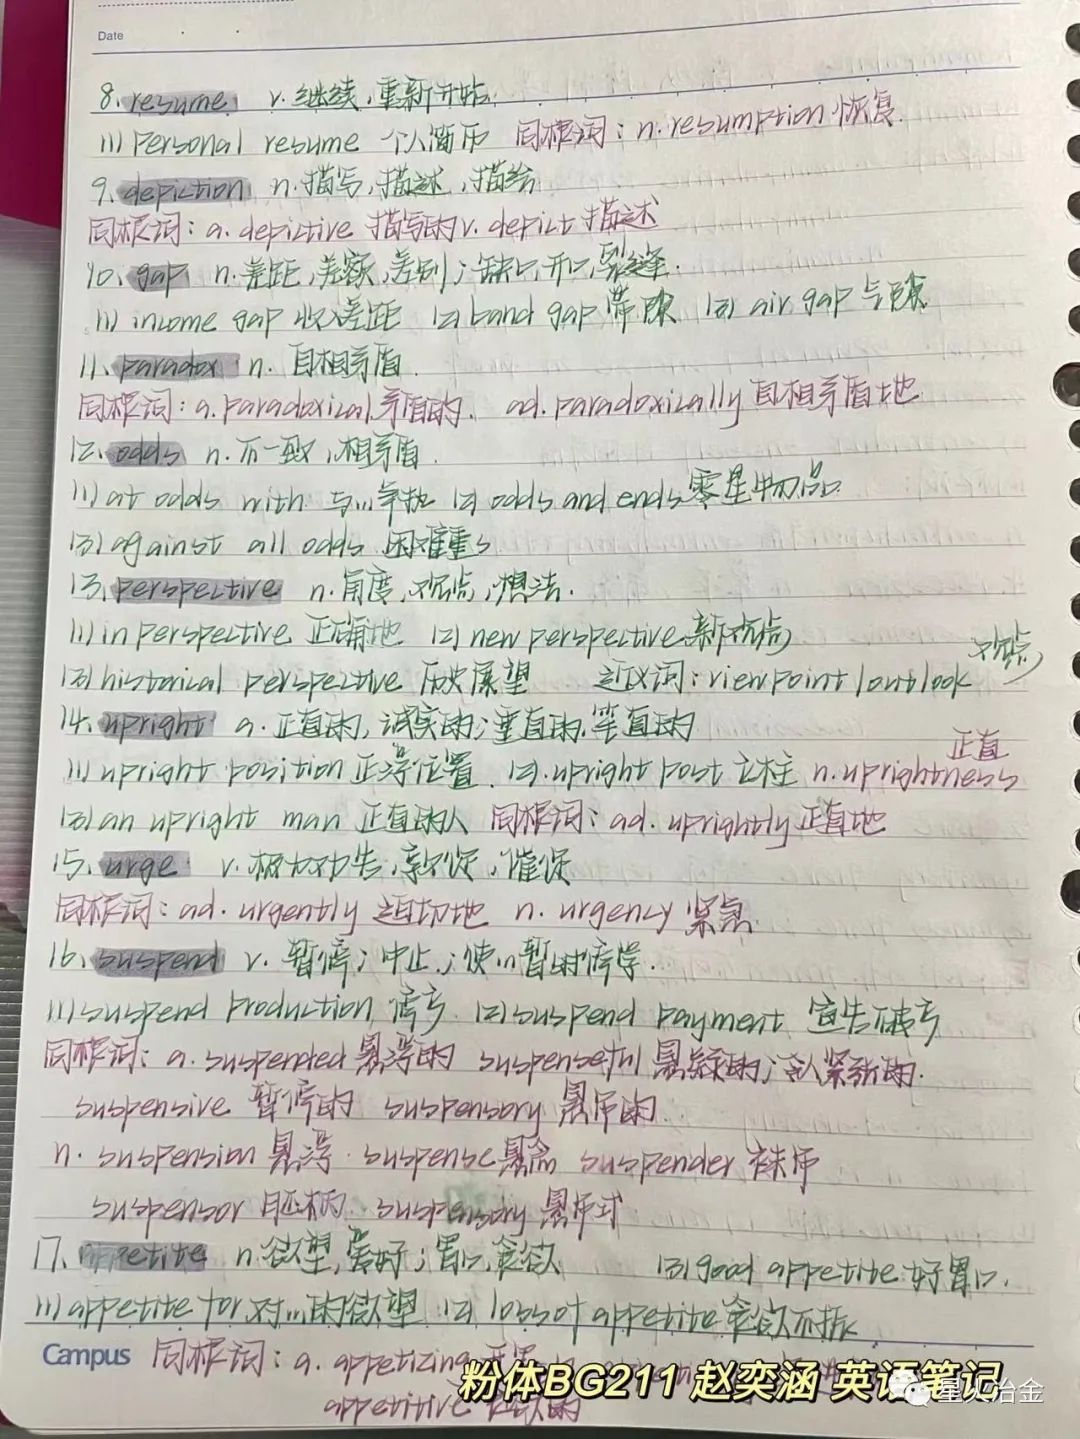 Date
8. resume v. 继续，重新开始
(1) Personal resume 个人简历 同根词：n. resumption 恢复
9. depiction n. 描写，描述，描绘
同根词：a. depictive 描写的 v. depict 描述
10. gap n. 差距，差额，差别；缺口，开口，裂缝.
(1) income gap 收入差距 (2) band gap 带隙 (3) air gap 气隙
11. paradox n. 自相矛盾.
同根词：a. paradoxical 矛盾的. ad. paradoxically 自相矛盾地
12. odds n. 不一致，相矛盾.
(1) at odds with 与…争执 (2) odds and ends 零星物品
(3) against all odds 困难重重
13. perspective n. 角度，观点，想法.
(1) in perspective 正确地 (2) new perspective 新观点
(3) historical perspective 历史展望 近义词：viewpoint / outlook 观点
14. upright a. 正直的，诚实的；垂直的，笔直的
(1) upright position 正浮位置 (2) upright post 立柱 n. uprightness 正直
(3) an upright man 正直的人 同根词：ad. uprightly 正直地
15. urge v. 极力劝告，敦促，催促
同根词：ad. urgently 迫切地 n. urgency 紧急
16. suspend v. 暂停；中止；使…暂时停学.
(1) suspend production 停产 (2) suspend payment 宣告破产
同根词：a. suspended 悬浮的 suspenseful 悬疑的；令人紧张的.
suspensive 暂停的 suspensory 悬吊的
n. suspension 悬浮 suspense 悬念 suspender 袜吊
suspensor 胚柄 suspensory 悬吊式
17. appetite n. 欲望，爱好；胃口，食欲 (3) good appetite 好胃口.
(1) appetite for 对…的欲望 (2) loss of appetite 食欲不振
Campus 同根词：a. appetizing
appetitive 食欲的
粉体BG211 赵奕涵 英语笔记
星火冶金